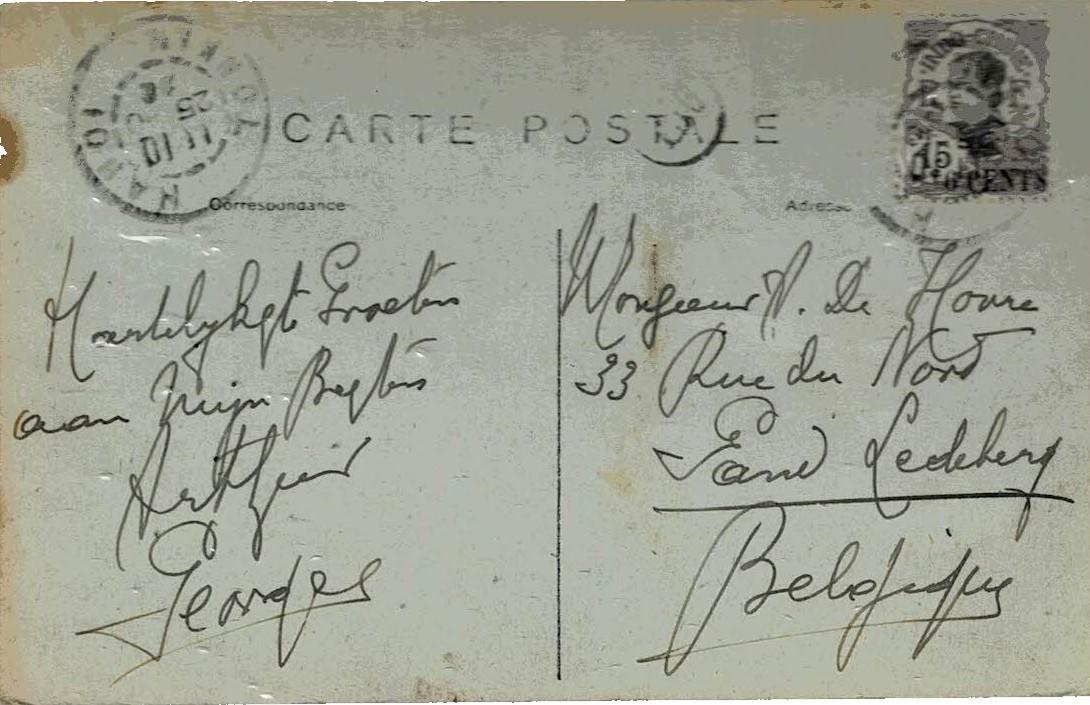 CARTE POSTALE
Correspondance
Adresse
TONKIN
HANOI
15
6 CENTS
Hartelykste Groeten
aan Mijn Besten
Arthur
Georges
Monsieur A. De
33 Rue du Nord
Gand Ledeberg
Belgique